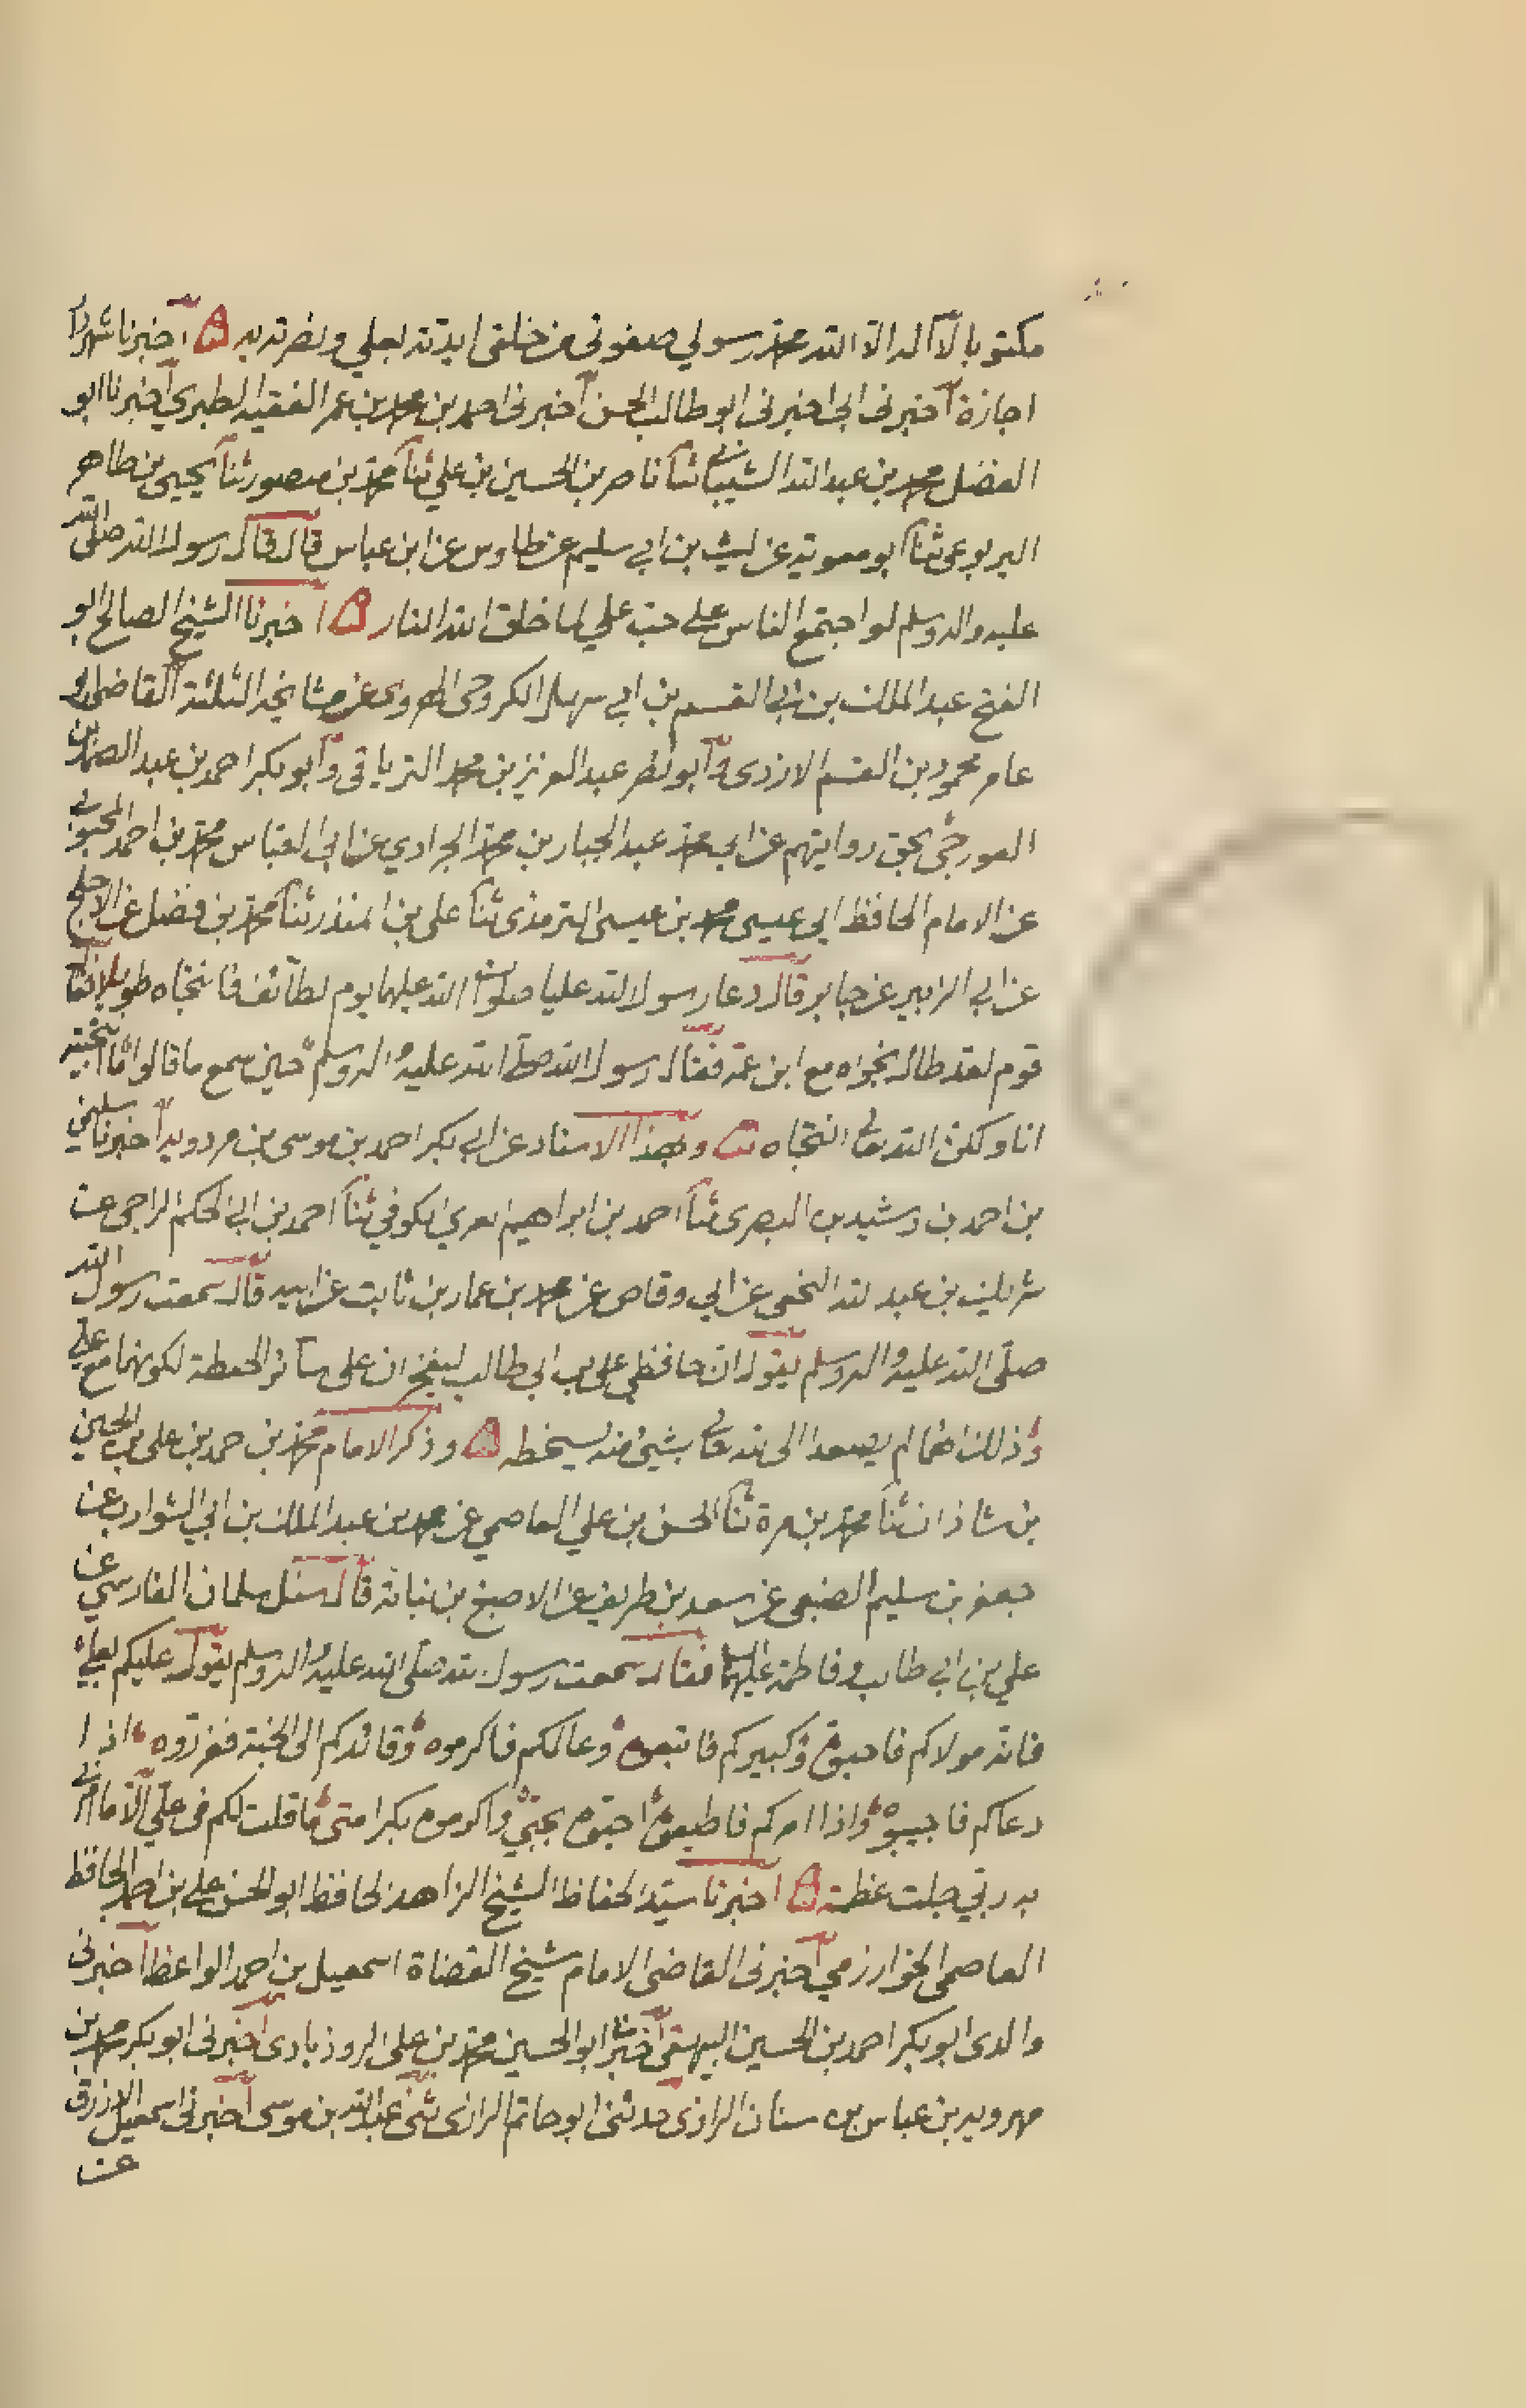 مكتوبا لا اله الا الله محمد رسولي صفوتي من خلقي ايدته بعلي ونصرته به اخبرنا شهردار
اجازة اخبرنى ابى اخبرنى ابو طالب الحسن اخبرنى احمد بن محمد بن عمر الفقيه الطبري اخبرنا ابو
الفضل محمد بن عبد الله الشيباني ثنا ناصر بن الحسين بن علي ثنا محمد بن منصور ثنا يحيى بن طاهر
اليربوعى ثنا ابو معوية عن ليث بن ابي سليم عن طاوس عن ابن عباس قال قال رسول الله صلى الله
عليه واله وسلم لو اجتمع الناس على حب علي لما خلق الله النار اخبرنا الشيخ الصالح ابو
الفتح عبد الملك بن ابي القسم بن ابي سهل الكروخى الهروى عن مشايخه الثلثة القاضى ابو
عامر محمود بن القسم الازدى وابو نصر عبد العزيز بن محمد الترياقى وابو بكر احمد بن عبد الصمد
الغورجى بحق روايتهم عن ابي محمد عبد الجبار بن محمد الجراحي عن ابي العباس محمد بن احمد المحبوبي
عن الامام الحافظ ابي عيسى محمد بن عيسى الترمذى ثنا علي بن المنذر ثنا محمد بن فضل عن الاجلح
عن ابي الزبير عن جابر قال دعا رسول الله عليا صلوات الله عليهما يوم الطائف فانتجاه طويلا فقال
قوم لقد طال نجواه مع ابن عمه فقال رسول الله صلى الله عليه واله وسلم حين سمع ما قالوا ما انتجيته
انا ولكن الله تعالى انتجاه وبهذا الاسناد عن ابي بكر احمد بن موسى بن مردويه اخبرنا سليمن
بن احمد بن رشيد بن البصرى ثنا احمد بن ابراهيم الكوفي ثنا احمد بن ابي الحكم الراجى عن
شريك بن عبد الله النخعى عن ابي وقاص عن محمد بن عمار بن ثابت عن ابيه قال سمعت رسول الله
صلى الله عليه واله وسلم يقول ان حافظي على بن ابي طالب ليفخران على سائر الحفظة لكونهما مع علي
وذلك انهما لم يصعدا الى الله تعالى بشئ منه يسخطه وذكر الامام محمد بن احمد بن على بن الحسين
بن شاذان ثنا محمد بن مرة ثنا الحسن بن علي العاصمي عن محمد بن عبد الملك بن ابي الشوارب عن
جعفر بن سليم الضبعى عن سعد بن طريف عن الاصبغ بن نباتة قال سئل سلمان الفارسي عن
علي بن ابي طالب وفاطمة عليهما السلام فقال سمعت رسول الله صلى الله عليه واله وسلم يقول عليكم بعلي
فانه مولاكم فاحبوه وكبيركم فاتبعوه وعالمكم فاكرموه وقائدكم الى الجنة فعززوه واذا
دعاكم فاجيبوه واذا امركم فاطيعوه احبوه بحبي واكرموه بكرامتى ما قلت لكم فى علي الا ما امرني
به ربي جلت عظمته اخبرنا سيد الحفاظ الشيخ الزاهد الحافظ ابو الحسن علي بن احمد الحافظ
العاصمى الخوارزمي اخبرنى القاضى الامام شيخ القضاة اسمعيل بن احمد الواعظ اخبرنى
والدى ابو بكر احمد بن الحسين البيهقى اخبرنا ابو الحسين محمد بن على الروذبادى اخبرنى ابو بكر محمد بن
مهرويه بن عباس بن سنان الرازى حدثنى ابو حاتم الرازى ثنى عبد الله بن موسى اخبرنى اسمعيل الازرق
عن